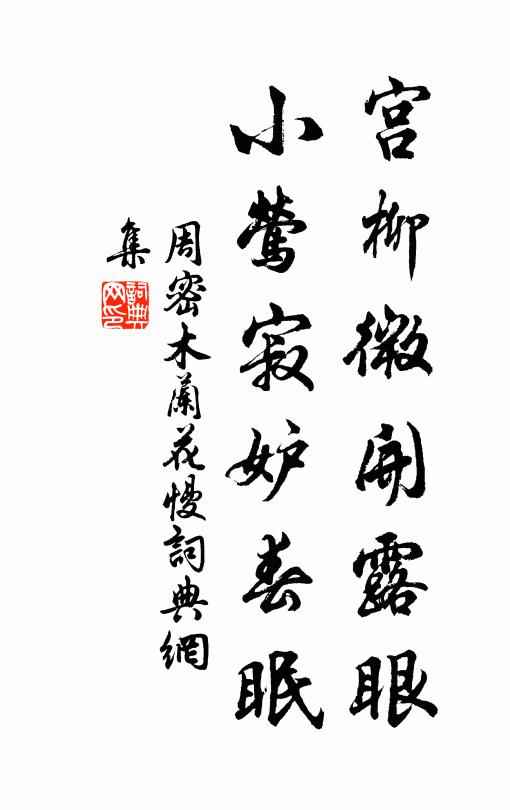 宫柳微開露眼
小莺寂妒春眠
周密木蘭花慢詞典網
集
詞典
网印